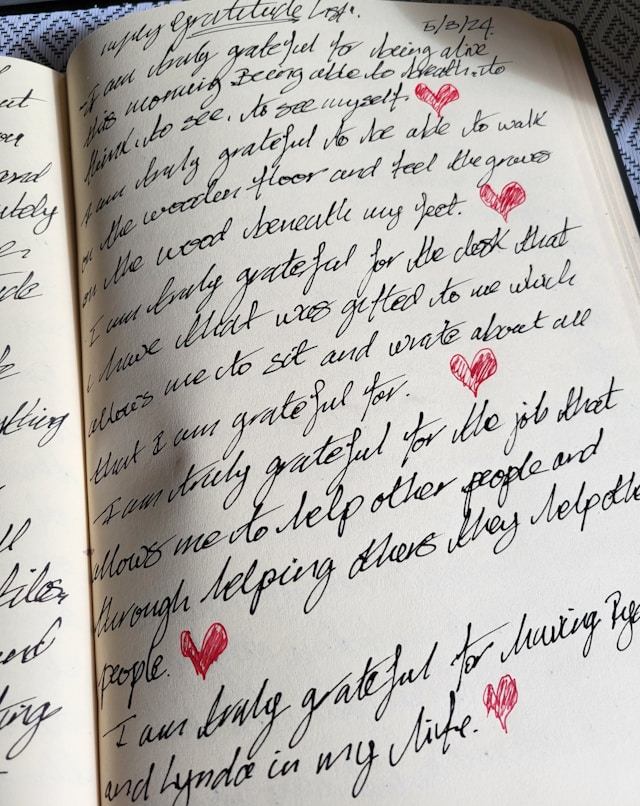 my Gratitude List. 5/3/24.
- I am truly grateful for being alive
this morning Being able to breath, to
think, to see, to see myself.
I am truly grateful to be able to walk
on the wooden floor and feel the groves
on the wood beneath my feet.
I am truly grateful for the desk that
i have that was gifted to me which
allows me to sit and write about all
that I am grateful for.
I am truly grateful for the job that
allows me to help other people and
through helping others they help othe
people.
I am truly grateful for having Rya
and Lynda in my life.
and
utely
ything
and
ting